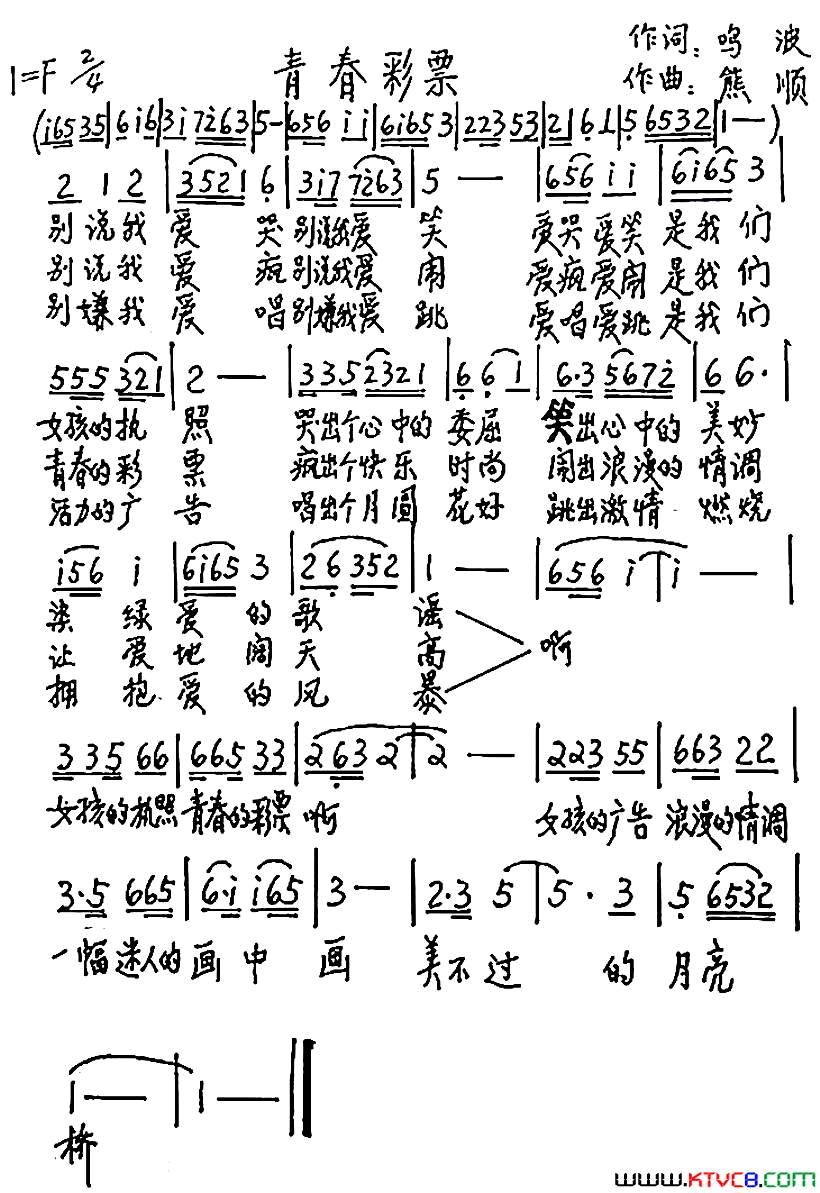 作词：鸣波
1=F 2/4 青春彩票
作曲：熊顺
(i65 35|6 i6|3i 7i63|5-|656 ii|6i65 3|223 53|21 61|5 6532|1—)
2 1 2|3521 6|3i7 7i63|5 —|656 ii|6i65 3|
别说我爱 哭别说我爱 笑 爱哭爱笑是我们
别说我爱 疯别说我爱 闹 爱疯爱闹是我们
别嫌我爱 唱别嫌我爱 跳 爱唱爱跳是我们
555 321|2 —|335 2321|6 6 1|6·3 567i|6 6·|
女孩的执 照 哭出个心中的 委屈 笑出心中的 美妙
青春的彩 票 疯出个快乐 时尚 闹出浪漫的 情调
活力的广 告 唱出个月圆 花好 跳出激情 燃烧
i56 i|6i65 3|26 352|1 —|656 i|i —|
染 绿 爱 的 歌 谣
让 爱 地 阔 天 高 啊
拥 抱 爱 的 风 暴
335 66|665 33|263 2|2 —|223 55|663 22|
女孩的执照 青春的彩票 啊 女孩的广告 浪漫的情调
3·5 665|6·i i65|3 —|2·3 5|5· 3|5 6532|
一幅迷人的画 中 画 美不过 的 月亮
1 —|1 —‖
桥
www.KTVC8.com